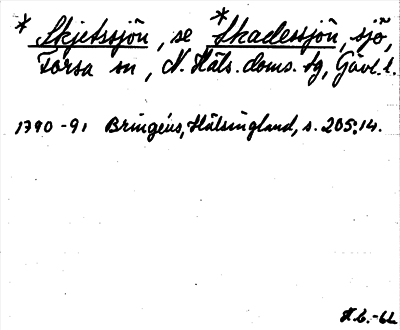 * Skjetssjön, se *Skadessjön, sjö,
Forsa sn, N. Häls. doms. tg, Gävl. l.
1790-91 Bringéus, Hälsingland, s. 205:14.
H.b.-62